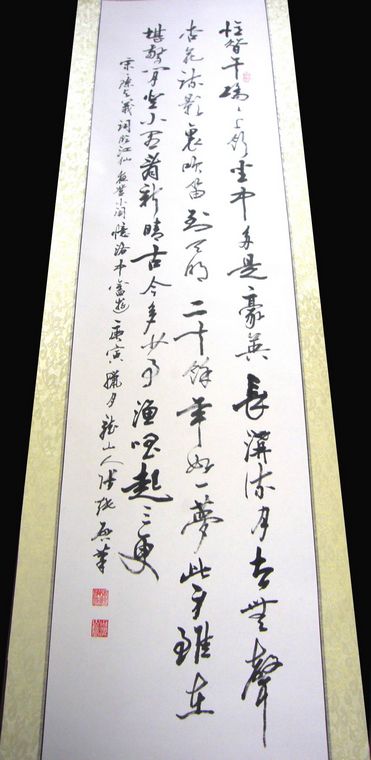 憶昔午橋々上飲坐中多是豪英長溝流月去無聲
杏花疏影裏吹笛到天明二十餘年如一夢此身雖在
堪驚閒登小閣看新晴古今多少事漁唱起三更
宋陳與義詞臨江仙夜登小閣憶洛中舊遊庚寅臘月山人